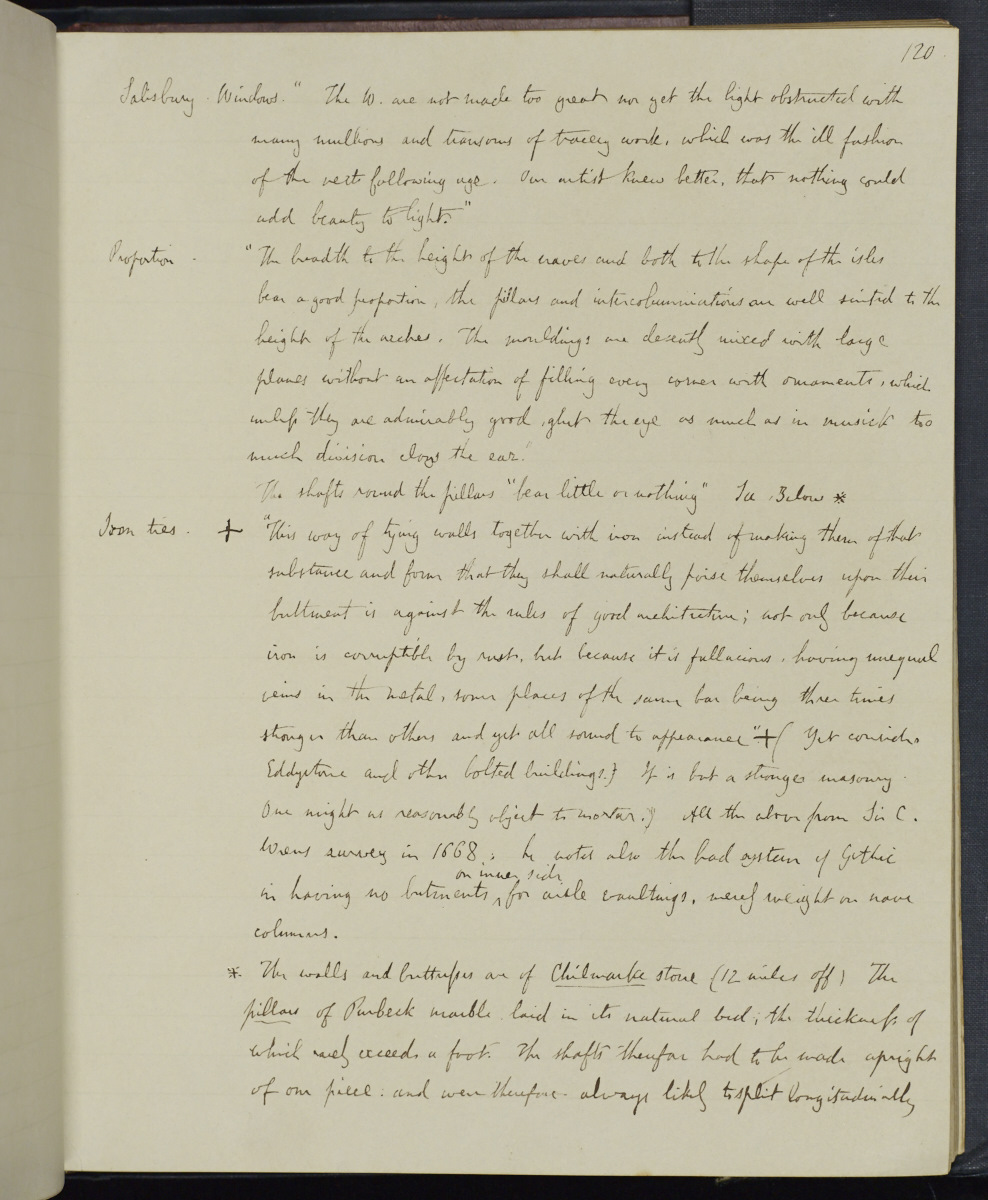 120
Salisbury. Windows. " The W. are not made too great nor yet the light obstructed with
many mullions and transoms of tracery work, which was the ill fashion
of the next following age. Our artist knew better, that nothing could
add beauty to light."
Proportion - " The breadth to the height of the naves and both to the shape of the isles
bear a good proportion, the pillars and intercolumniations are well suited to the
height of the arches. The mouldings are decently mixed with large
planes without an affectation of filling every corner with ornaments, which
unless they are admirably good, glut the eye as much as in musick too
much division cloys the ear."
The shafts round the pillars "bear little or nothing" See Below *
Iron ties. + "This way of tying walls together with iron instead of making them of that
substance and form that they shall naturally poise themselves upon their
buttment is against the rules of good architecture; not only because
iron is corruptible by rust, but because it is fallacious, having unequal
veins in the metal, some places of the same bar being three times
stronger than others and yet all sound to appearance" + ( Yet consider
Eddystone and other bolted buildings.) It is but a stronger masonry.
One might as reasonably object to mortar.) All the above from Sir C.
Wrens survey in 1668; he notes also the bad system of Gothic
in having no butments on inner side for aisle vaultings, merely weight on nave
columns.
* The walls and buttresses are of Chilmarke stone (12 miles off) The
pillars of Purbeck marble laid in its natural bed; the thickness of
which rarely exceeds a foot. The shafts therefore had to be made upright
of one piece. and were therefore always likely to split longitudinally